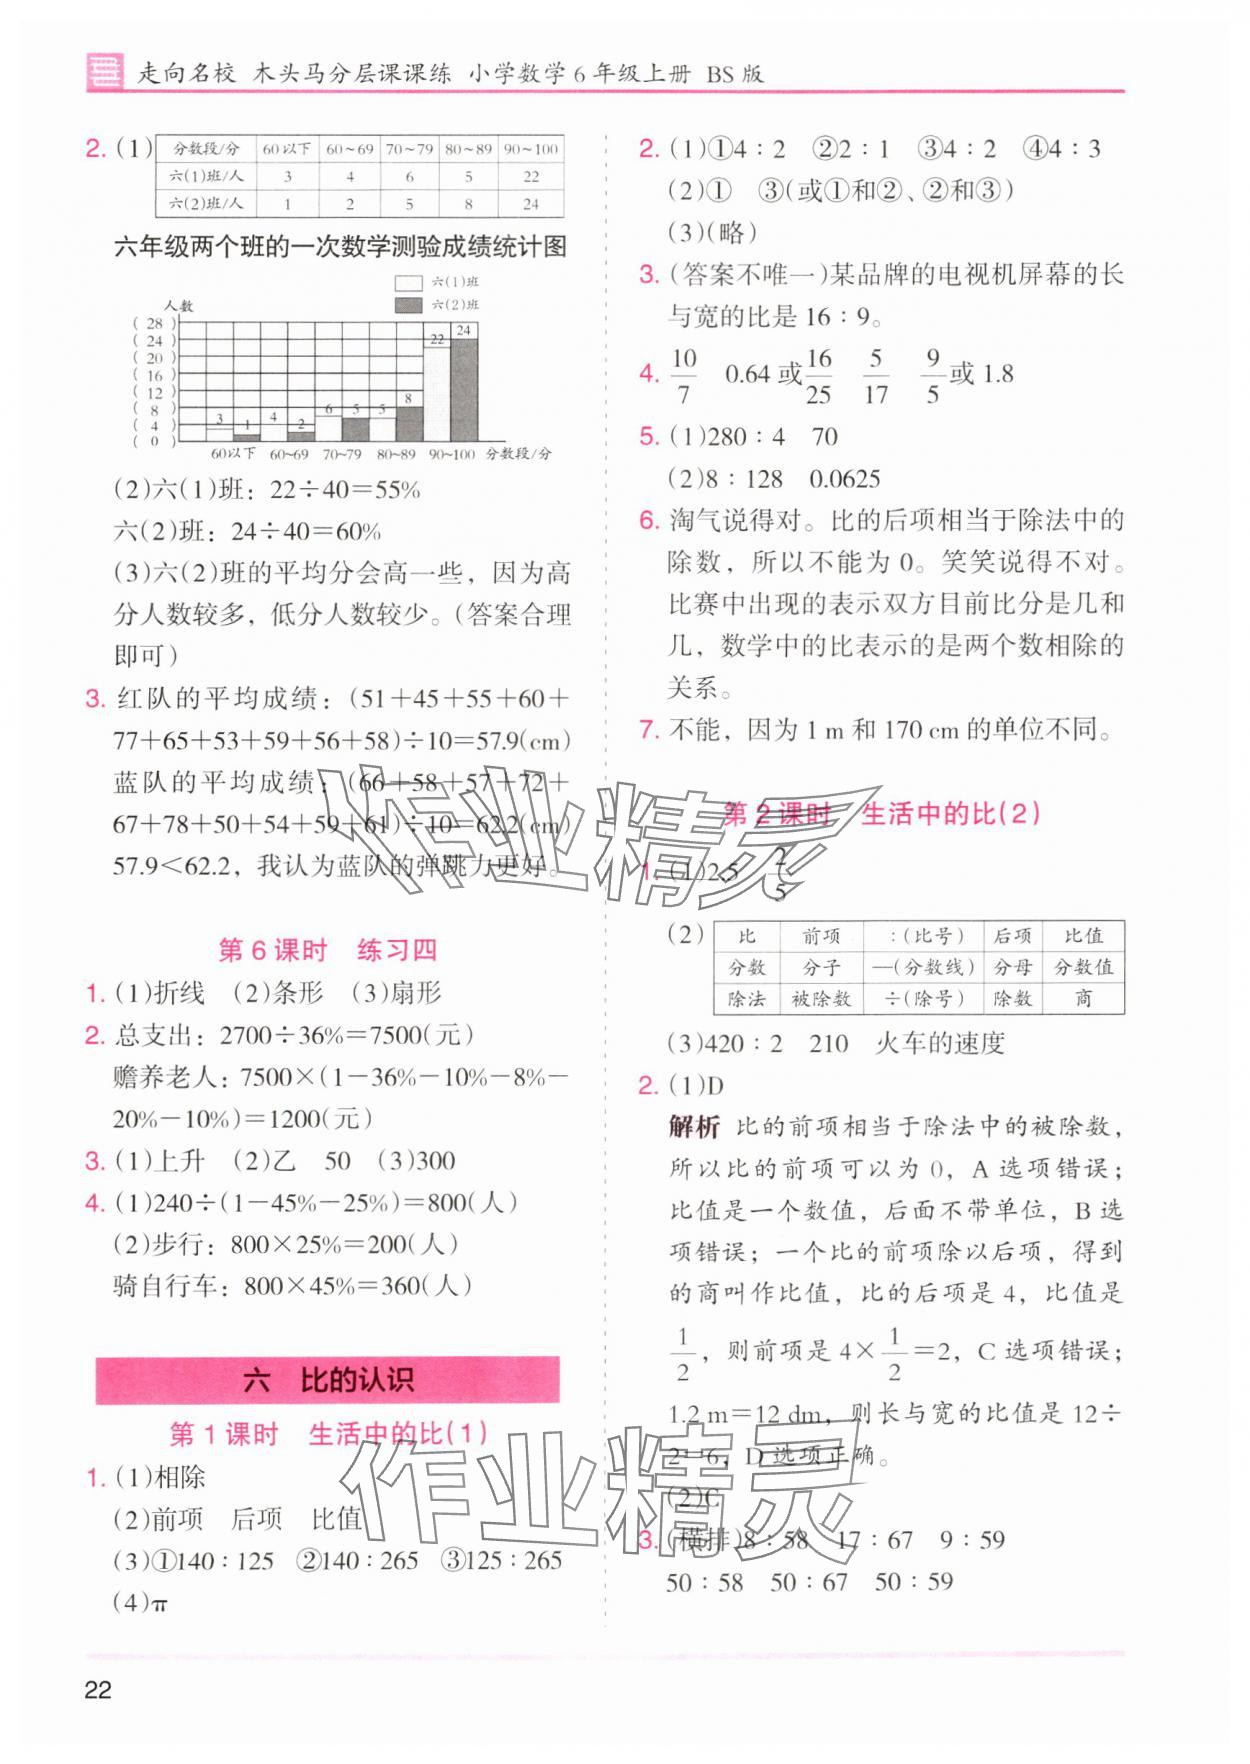 走向名校 木头马分层课课练 小学数学6年级上册 BS版
2. (1) 分数段/分 60以下 60~69 70~79 80~89 90~100
六(1)班/人 3 4 6 5 22
六(2)班/人 1 2 5 8 24
六年级两个班的一次数学测验成绩统计图
六(1)班
六(2)班
人数
(28)
(24)
(20)
(16)
(12)
(8)
(4)
(0)
3 1 4 2 6 5 5 8 22 24
60以下 60~69 70~79 80~89 90~100 分数段/分
(2)六(1)班：22÷40=55%
六(2)班：24÷40=60%
(3)六(2)班的平均分会高一些，因为高
分人数较多，低分人数较少。(答案合理
即可)
3. 红队的平均成绩：(51+45+55+60+
77+65+53+59+56+58)÷10=57.9(cm)
蓝队的平均成绩：(66+58+57+72+
67+78+50+54+59+61)÷10=62.2(cm)
57.9<62.2，我认为蓝队的弹跳力更好。
第6课时 练习四
1. (1)折线 (2)条形 (3)扇形
2. 总支出：2700÷36%=7500(元)
赡养老人：7500×(1-36%-10%-8%-
20%-10%)=1200(元)
3. (1)上升 (2)乙 50 (3)300
4. (1)240÷(1-45%-25%)=800(人)
(2)步行：800×25%=200(人)
骑自行车：800×45%=360(人)
六 比的认识
第1课时 生活中的比(1)
1. (1)相除
(2)前项 后项 比值
(3)①140∶125 ②140∶265 ③125∶265
(4)π
2. (1)①4∶2 ②2∶1 ③4∶2 ④4∶3
(2)① ③(或①和②、②和③)
(3)(略)
3. (答案不唯一)某品牌的电视机屏幕的长
与宽的比是16∶9。
4. 10/7 0.64或16/25 5/17 9/5或1.8
5. (1)280∶4 70
(2)8∶128 0.0625
6. 淘气说得对。比的后项相当于除法中的
除数，所以不能为0。笑笑说得不对。
比赛中出现的表示双方目前比分是几和
几，数学中的比表示的是两个数相除的
关系。
7. 不能，因为1 m和170 cm的单位不同。
第2课时 生活中的比(2)
1. (1)2.5 2/5
(2) 比 前项 ∶(比号) 后项 比值
分数 分子 —(分数线) 分母 分数值
除法 被除数 ÷(除号) 除数 商
(3)420∶2 210 火车的速度
2. (1)D
解析 比的前项相当于除法中的被除数，
所以比的前项可以为0，A选项错误；
比值是一个数值，后面不带单位，B选
项错误；一个比的前项除以后项，得到
的商叫作比值，比的后项是4，比值是
1/2，则前项是4×1/2=2，C选项错误；
1.2 m=12 dm，则长与宽的比值是12÷
2=6，D选项正确。
(2)C
3. (横排)8∶58 17∶67 9∶59
50∶58 50∶67 50∶59
作业精灵
作业精灵
22